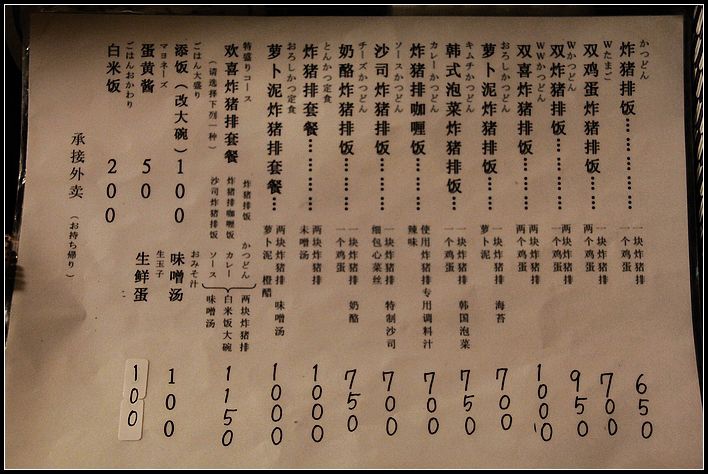 かつどん
炸猪排饭………
一块炸猪排
一个鸡蛋
650
Wたまご
双鸡蛋炸猪排饭…
一块炸猪排
两个鸡蛋
700
Wかつどん
双炸猪排饭………
两块炸猪排
一个鸡蛋
950
WWかつどん
双喜炸猪排饭……
两块炸猪排
两个鸡蛋
1000
おろしかつどん
萝卜泥炸猪排饭…
一块炸猪排 海苔
萝卜泥
700
キムチかつどん
韩式泡菜炸猪排饭…
一块炸猪排 韩国泡菜
一个鸡蛋
750
カレーかつどん
炸猪排咖喱饭……
使用炸猪排专用调料汁
辣味
700
ソースかつどん
沙司炸猪排饭……
一块炸猪排 特制沙司
细包心菜丝
700
チーズかつどん
奶酪炸猪排饭……
一块炸猪排 奶酪
一个鸡蛋
750
とんかつ定食
炸猪排套餐………
两块炸猪排
未噌汤
1000
おろしかつ定食
萝卜泥炸猪排套餐…
两块炸猪排 味噌汤
萝卜泥 橙醋
1000
特盛りコース
欢喜炸猪排套餐
(请选择下列一种)
炸猪排饭 かつどん
炸猪排咖喱饭 カレー
沙司炸猪排饭 ソース
两块炸猪排
白米饭大碗
味噌汤
1150
ごはん大盛り
添饭(改大碗)100
おみそ汁
味噌汤
100
マヨネーズ
蛋黄酱 50
生玉子
生鲜蛋
100
ごはんおかわり
白米饭 200
承接外卖 (お持ち帰り)